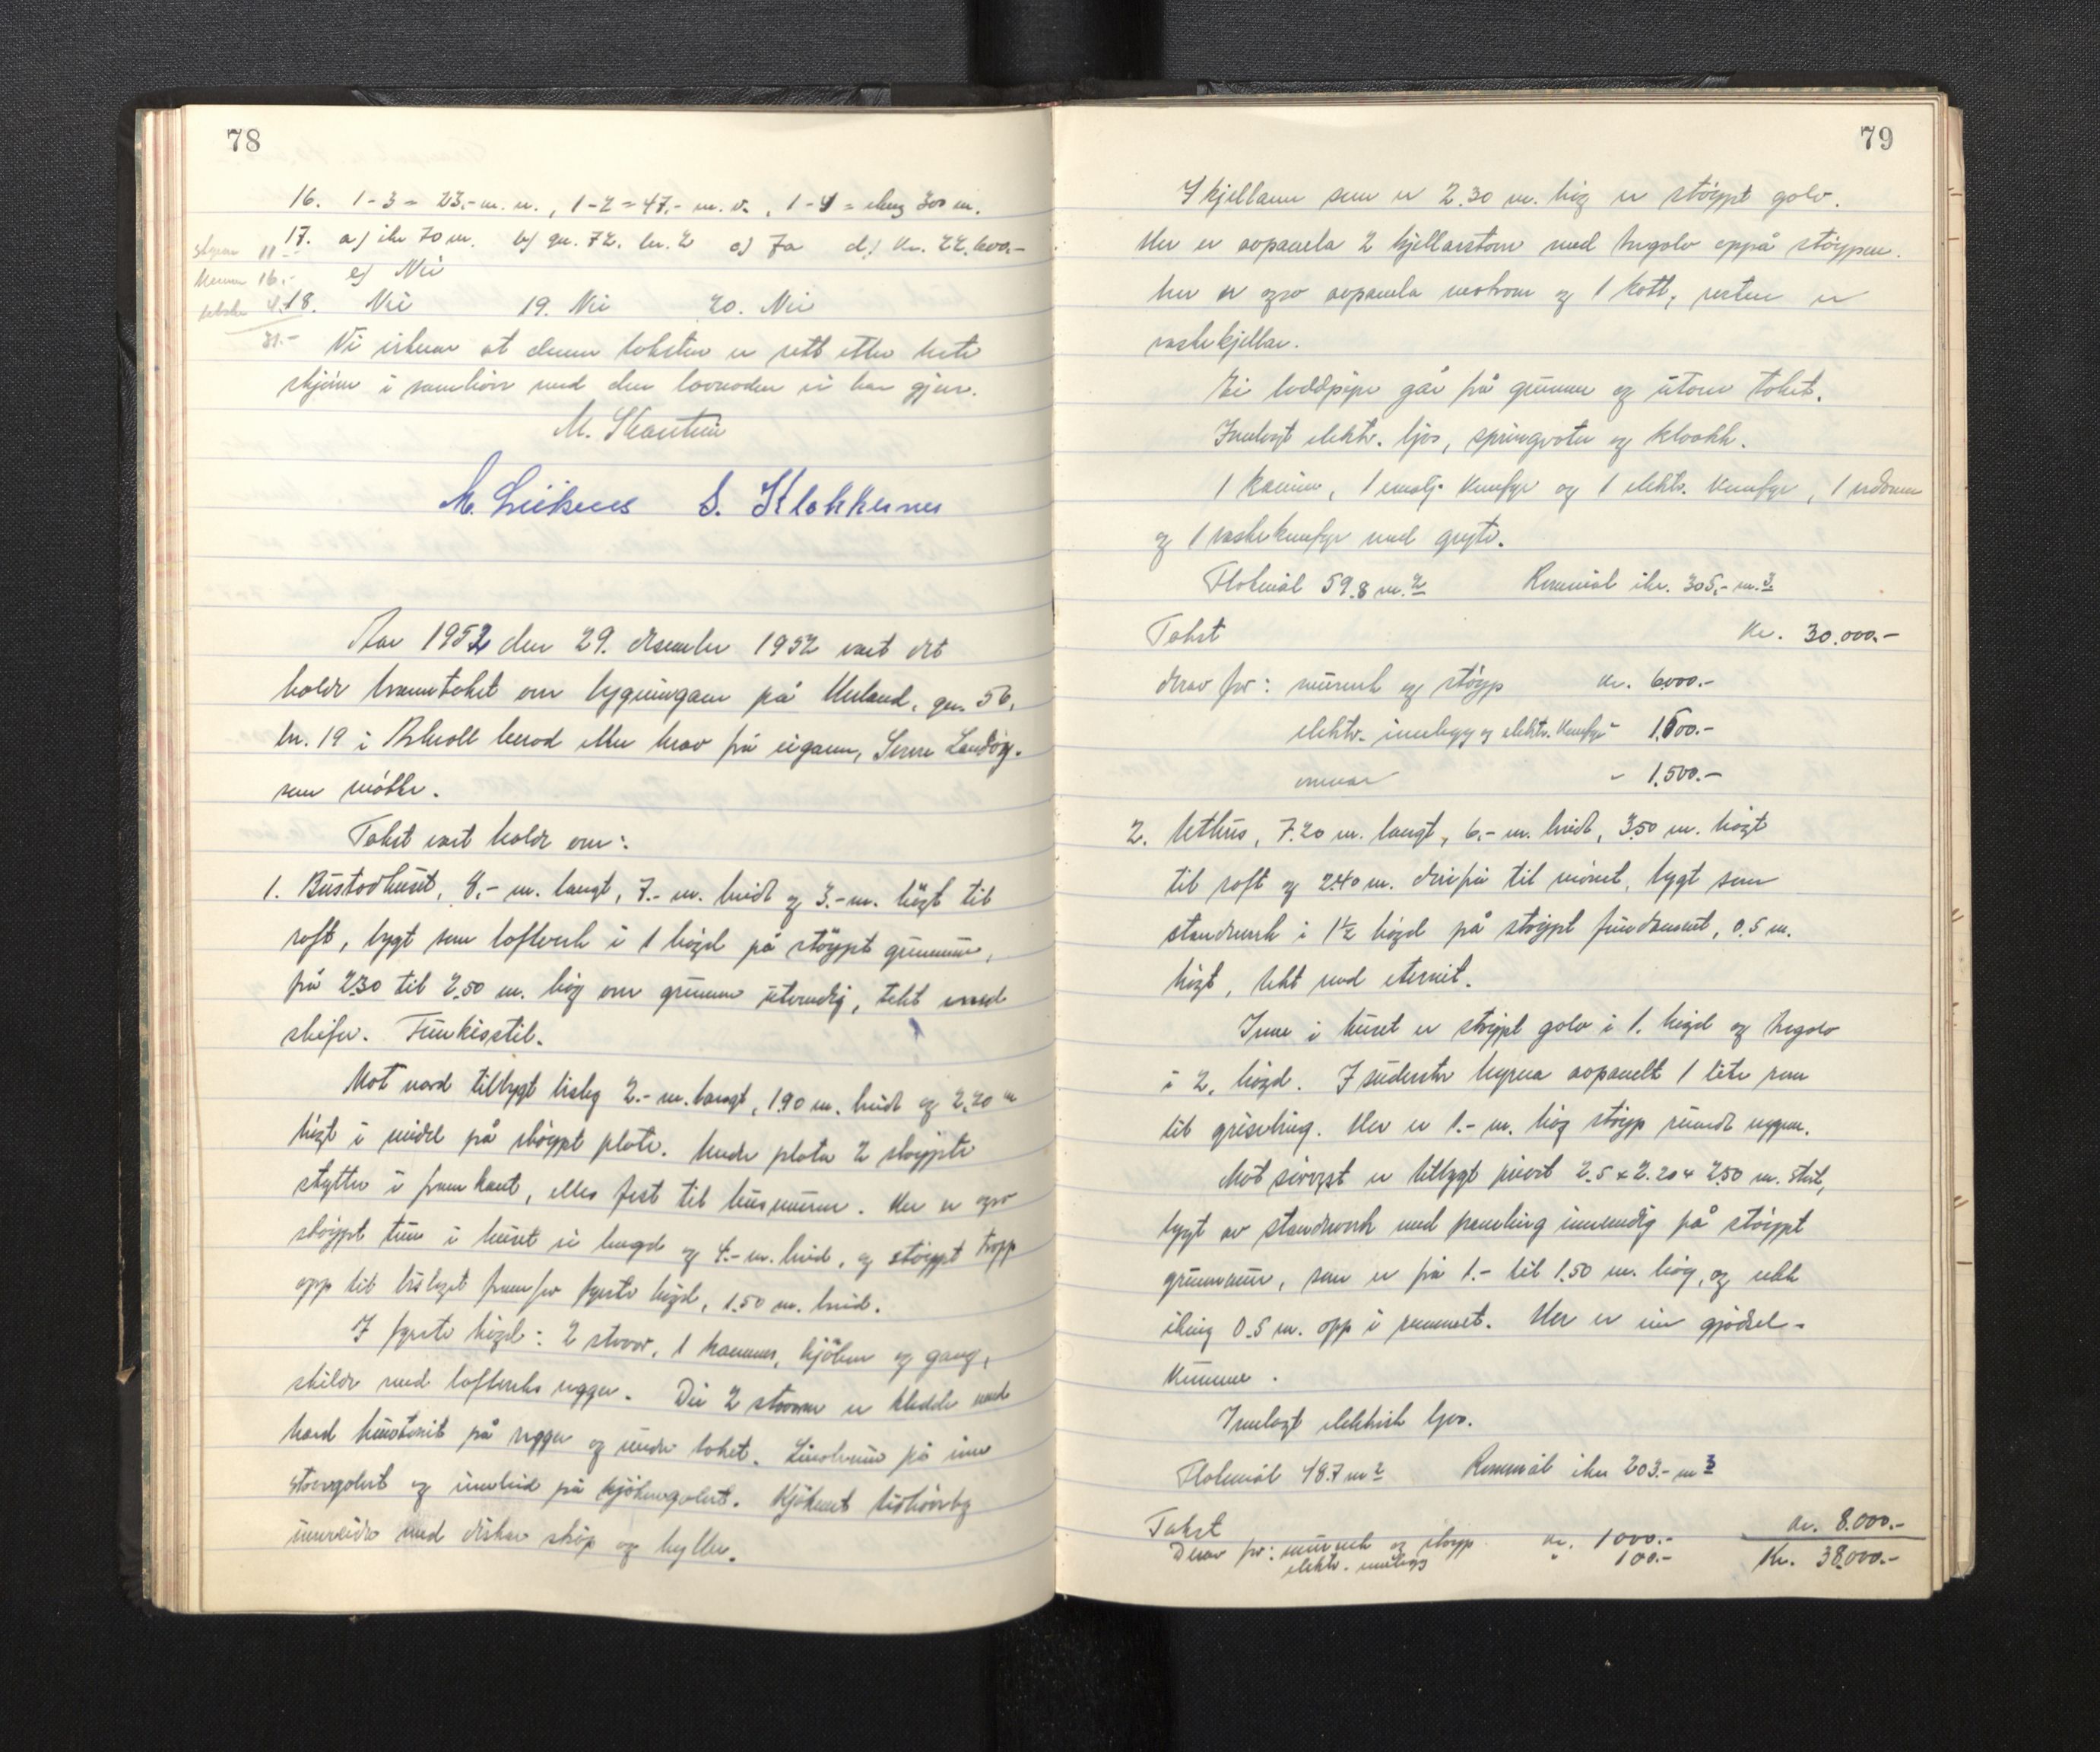 78
16. 1-3 = 23,- m. u., 1-2 = 47,- m. v., 1-4 = 300 m.
17. a) ikr 70 m. b) gn. 72, br. 2 c) Ja d) kr. 22.600.-
e) Nei
18. Nei 19. Nei 20. Nei
11
16.-
4.-
31.-
Vi at denne taksten er sett etter beste
skjönn i samhöve med den lovnaden vi har gjeve.
M. Skartun
M. S. Klokkernes
Aar 1952 den 29. desember 1952 vart det
halde branntakst over bygningane på gn. 56,
br. 19 i herad etter krav frå eigaren,
som mötte.
Takst vart halde over:
1. Bustadhuset, 8,- m. langt, 7.- m. breidt og 3.- m. högt til
roft, bygt som lafteverk i 1 högd på stöypt grunnmur,
frå 2.30 til 2.50 m. hög over grunnen utvendig, tekt med
skifer. Funkisstil.
Mot nord tilbygt bislag 2.- m. langt, 1.90 m. breidt og 2.20 m
högt i midel på stöypt plate. Under plata 2 stöypte
stytter i framkant, elles fest til husmuren. Her er ogso
stöypt tun i huset si lengd og 4.- m. breid, og stöypt tropp
opp til bislaget framfor fyrste högd, 1.50 m. breid.
I fyrste högd: 2 stover, 1 kammer, kjöken og gang,
skilde med lafteverks vegger. Dei 2 stovene er kledde med
hard huntonit på vegger og under taket. Linoleum på eine
stovegolvet og innlaid på kjökengolvet. Kjökenet
innreidd med diskar skåp og hyller.
79
I kjellaren som er 2.30 m. hög er stöypt golv.
Her er avpanela 2 kjellarstover med tregolv oppå stöypen.
Her er ogso avpanela matrom og 1 kott, resten er
vaskekjellar.
Ei loddpipe går frå grunnen og utover taket.
Innlagt elektr. ljos, springvatn og kloakk.
1 kamin, 1 emalj. komfyr og 1 elektr. komfyr, 1 vedomn
og 1 vaskekomfyr med gryte.
Flatemål 59.8 m.2 Rommål ikr. 305,- m.3
Takst Kr. 30.000.-
derav for: murverk og stöyp kr. 6000.-
elektr. innlegg og elektr. komfyr " 1.600.-
omnar " 1.500.-
2. Uthus, 7.20 m. langt, 6.- m. breidt, 3.50 m. högt
til roft og 2.40 m. derifrå til mönet, bygt som
standverk i 1½ högd på stöypt fundament, 0.5 m.
högt, tekt med eternit.
Inne i huset er stöypt golv i 1. högd og tregolv
i 2. högd. I hyrna avpanelt 1 lite rom
til grisebing. Her er 1.- m. hög stöyp rundt veggen.
Mot er tilbygt privet 2.5 x 2.20 x 2.50 m. stort,
bygt av standverk med paneling innvendig på stöypt
grunnmur, som er frå 1.- til 1.50 m. hög, og
ikring 0.5 m. opp i rommet. Her er ein gjödsel-
kumme.
Innlagt elektrisk ljos.
Flatemål 48.7 m2 Rommål ikr 203.- m3
Takst kr. 8.000.-
Derav for: murverk og stöyp kr. 1000.-
elektr. innlegg " 100.-
Kr. 38.000.-